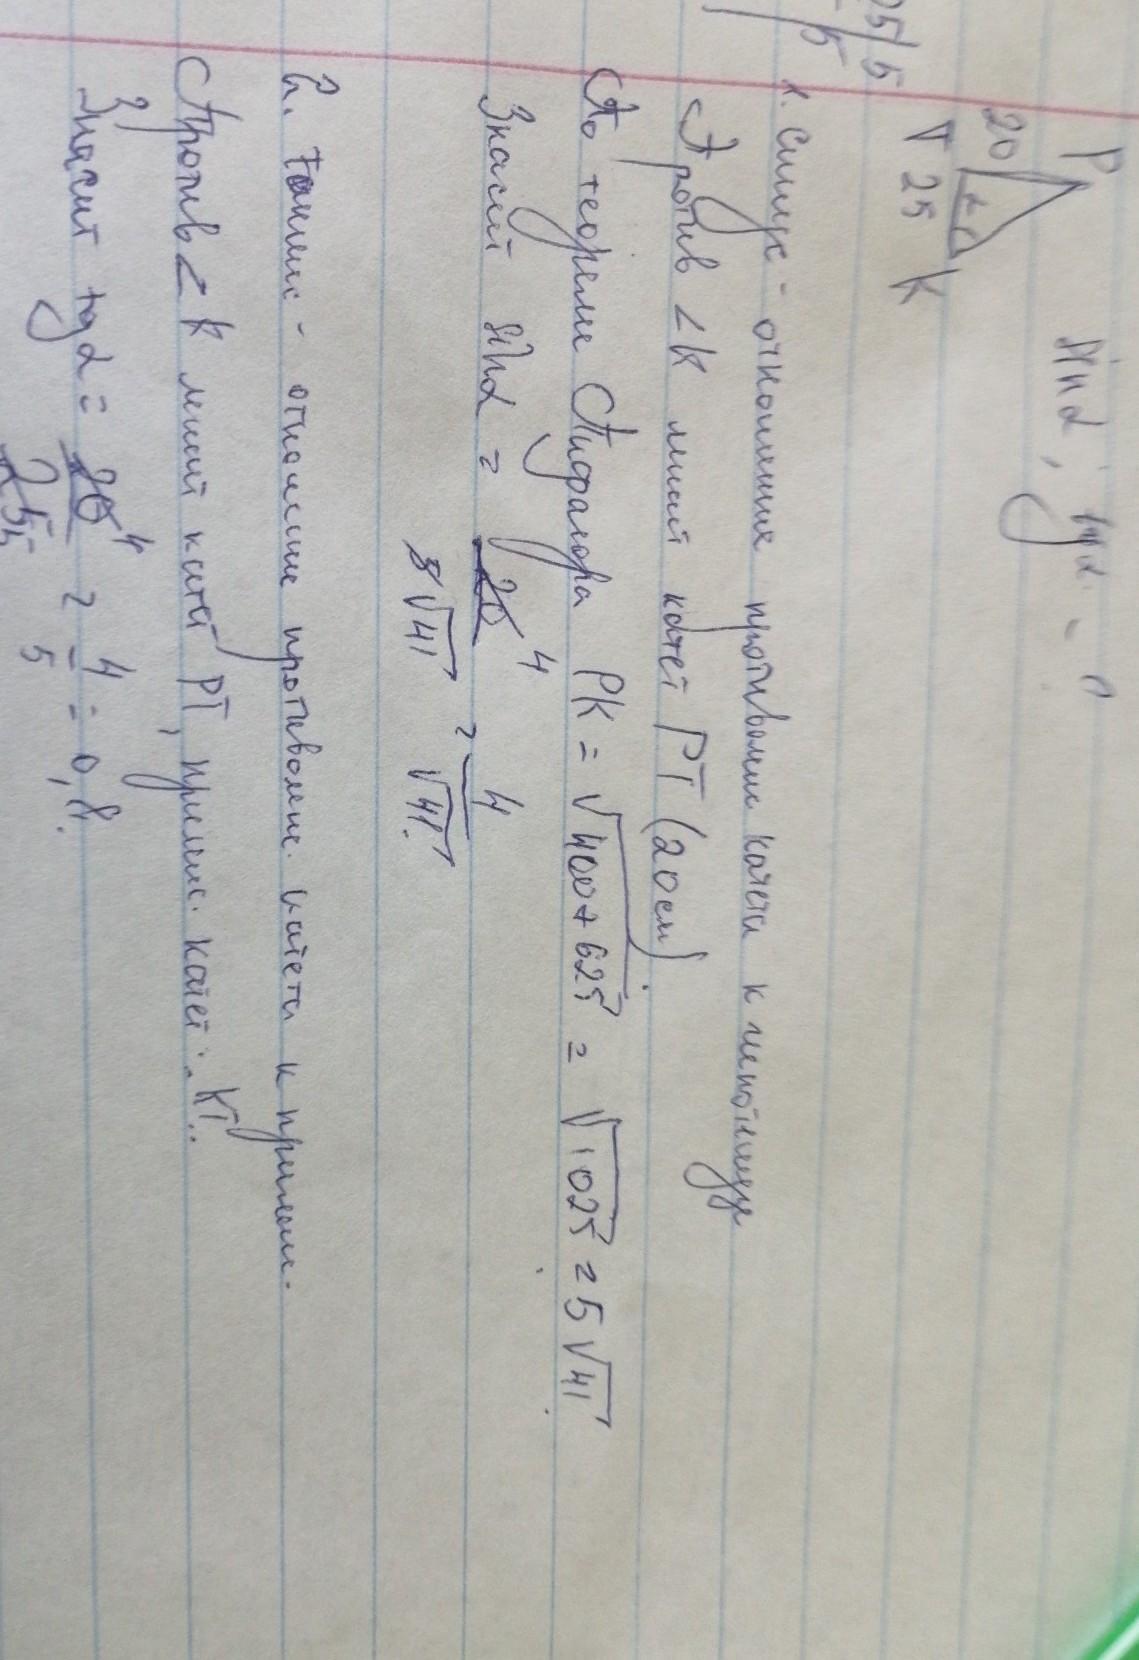 25/5
5
P
20
α
T 25 K
sin α, tg α - ?
1. Синус - отношение противолеж катета к гипотенузе
Против <K лежит катет PT (20см)
По теореме Пифагора PK = √400+625 = √1025 = 5√41
Значит sin α = 20 4 / 5√41 = 4/√41.
2. Тангенс - отношение противолеж. катета к прилеж.
Против <K лежит катет PT, прилеж. катет: KT.
Значит tg α = 20 4 / 25 5 = 4/5 = 0,8.